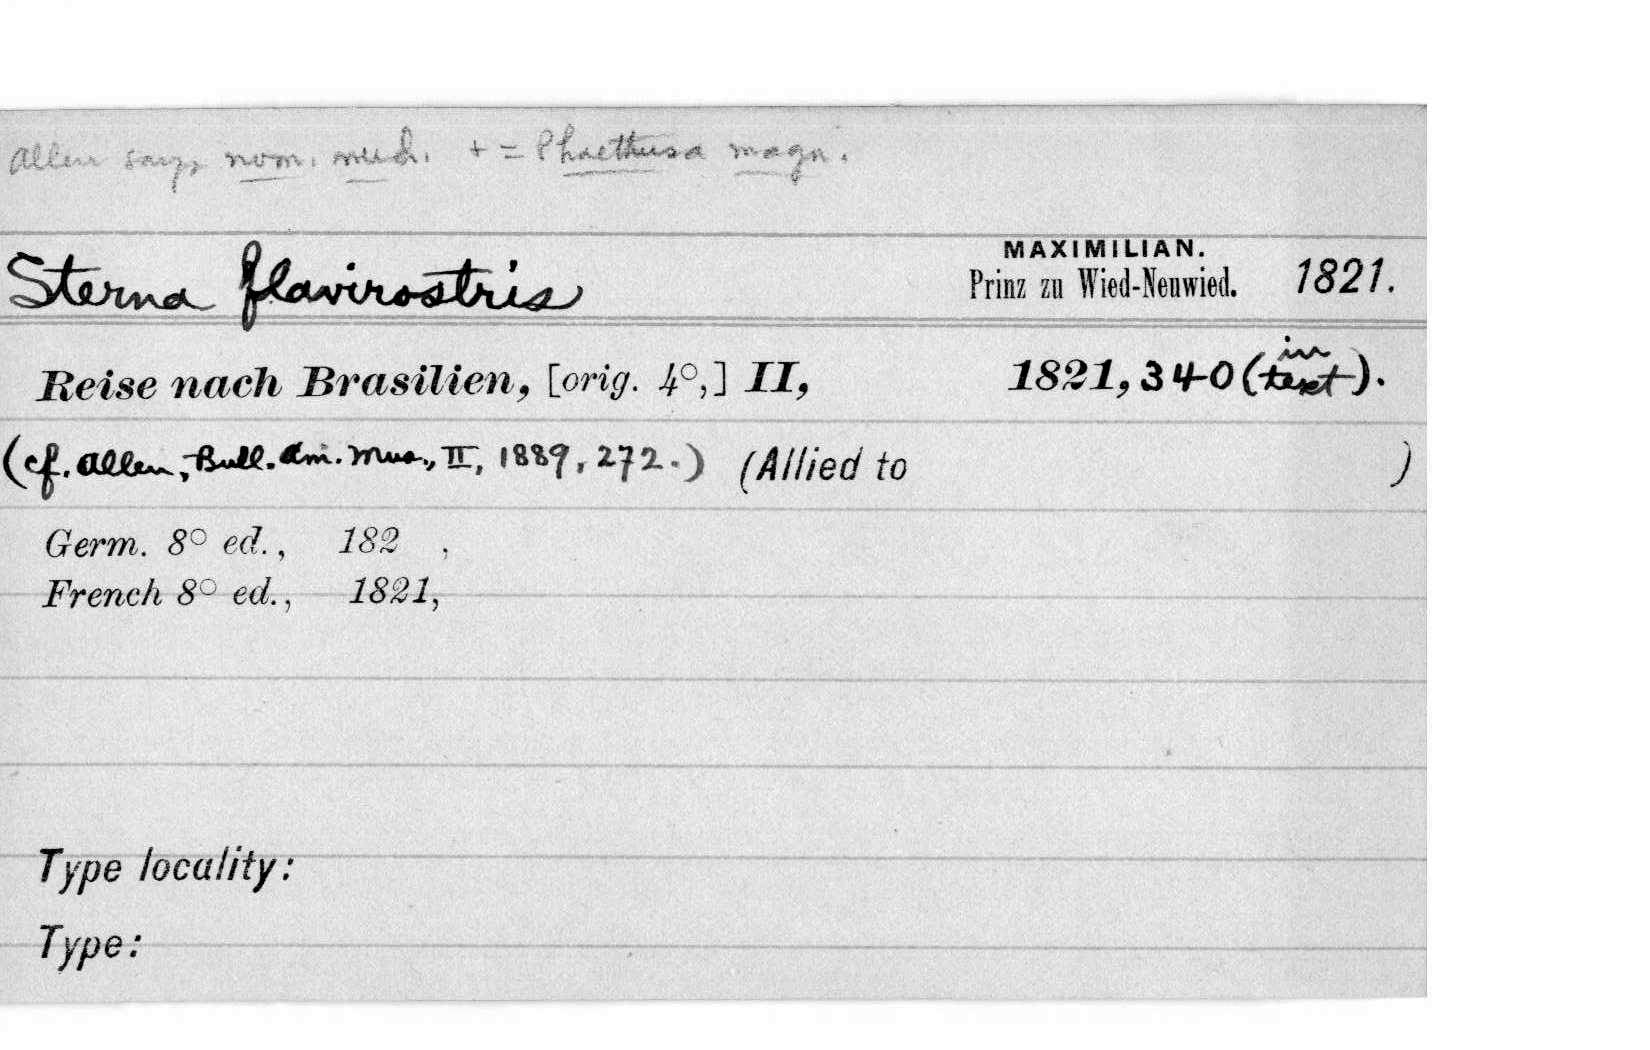 Allen says nom. nud. + = Phaethusa magn.
Sterna flavirostris MAXIMILIAN. Prinz zu Wied-Neuwied. 1821.
Reise nach Brasilien, [orig. 4°,] II, 1821, 340 (in text).
(cf. Allen, Bull. Am. Mus., II, 1889, 272.) (Allied to )
Germ. 8° ed., 182 ,
French 8° ed., 1821,
Type locality:
Type: